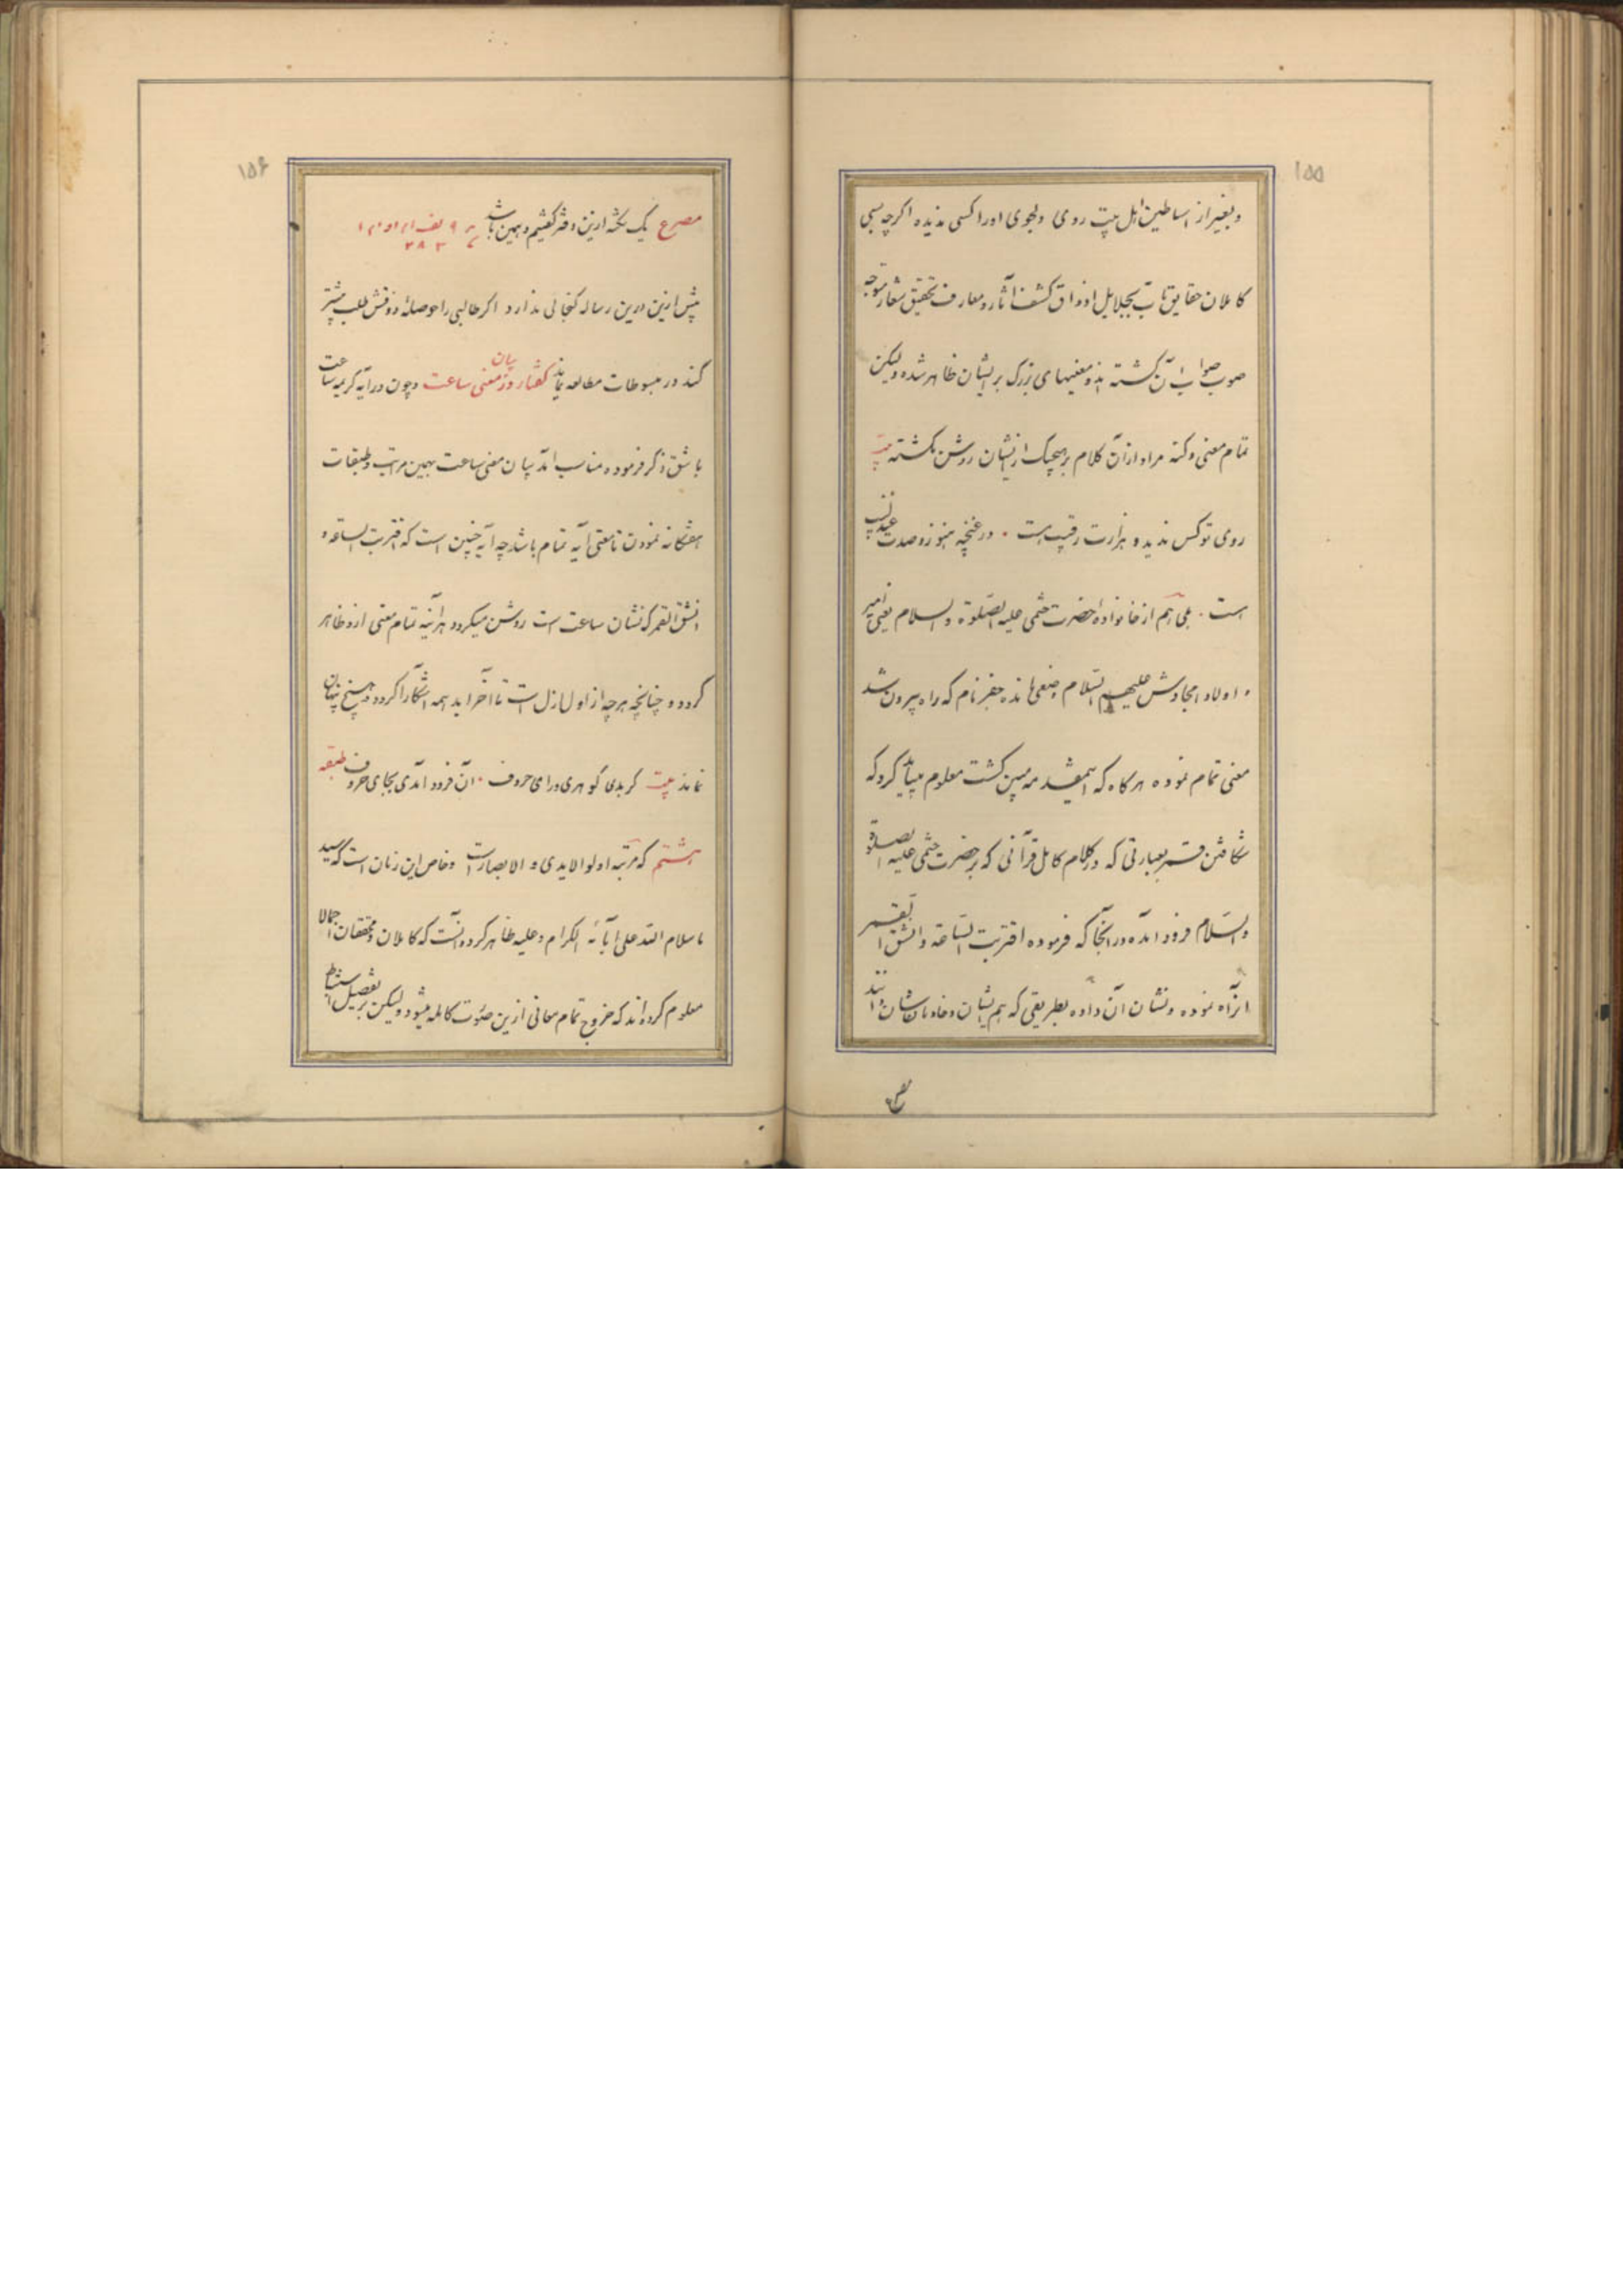 ۱۵۵
و بغیر از اساطین اهل بیت روی دلجوی او را کسی ندیده اگر چه بسی
کاملان حقایق مآب بجلایل اذواق کشف آثار و معارف تحقیق شعار متوجه
صوب صواب آن گشته‌اند و معنیهای بزرگ بر ایشان ظاهر شده ولیکن
تمام معنی و کنه مراد از آن کلام بر هیچیک از ایشان روشن نگشته بیت
روی تو کس ندید و هزارت رقیب هست . در غنچه هنوز و صدت عندلیب
است . بلی هم از خانواده حضرت ختمی علیه الصلوة و السلام یعنی امیر
و اولاد امجادش علیهم السلام وضعی مانده جفر نام که راه بیرون شد
معنی تمام نموده هر گاه که مبین گشت معلوم میباید کرد که
شکافتن قمر بعبارتی که در کلام کامل قرآنی که بر حضرت ختمی علیه الصلوة
والسلام فرود آمده در آنجا که فرموده اقتربت الساعة وانشق القمر
از آن نموده و نشان آن داده بطریقی که هم ایشان و خانه‌شان دانند
مصرع
۱۵۶
مصرع یک نکته ازین دفتر گفتیم و همین باشد
بیش ازین درین رساله گنجائی ندارد اگر طالبی را حوصلهٔ ذوقش طلب بیشتر
کند در مبسوطات مطالعه نماید گفتار در بیان معنی ساعت و چون در آیه کریمه ساعت
با شق ذکر فرموده مناسب آمد بیان معنی ساعت بهمین مراتب و طبقات
هشتگانه نمودن تا معنی آیه تمام باشد چه آیه چنین است که اقتربت الساعة و
انشق القمر که نشان ساعت است روشن میگردد هر آینه تمام معنی ازو ظاهر
گردد و چنانچه هر چه از اول ازل است تا آخر ابد همه آشکارا گردد و هیچ پنهان
نماند بیت گر بدی گوهری ورای حروف . آن فرود آمدی بجای حروف طبقه
هشتم که مرتبه اولو الایدی و الابصار است و خاص این زمان است که سید
ما سلام الله علی آبائه الکرام و علیه ظاهر کرده آنست که کاملان و محققان اجمالا
معلوم کرده‌اند که خروج تمام معانی ازین صورت کامله میشود ولیکن بر تفصیل استنباط